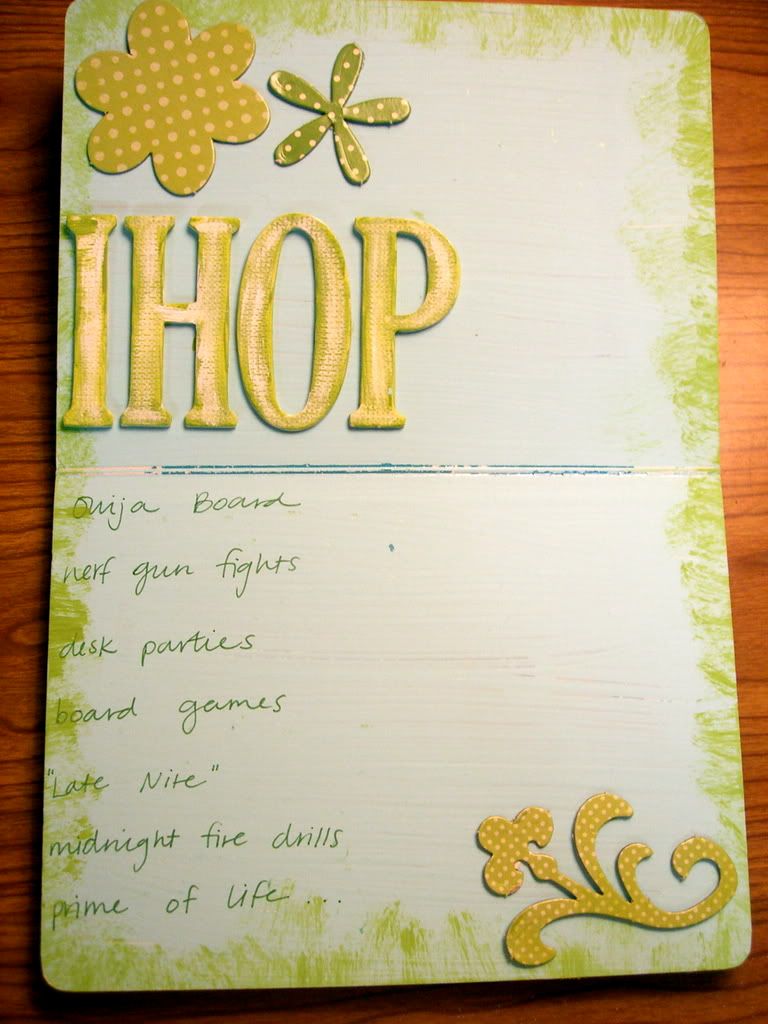 IHOP
Ouija Board
nerf gun fights
desk parties
board games
"Late Nite"
midnight fire drills
prime of life ...